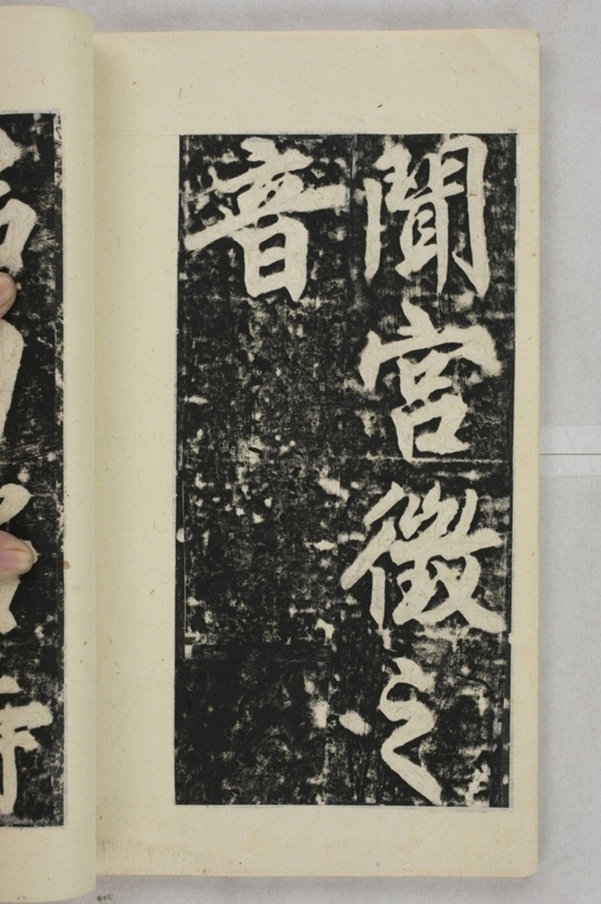 聞宮徵之
音